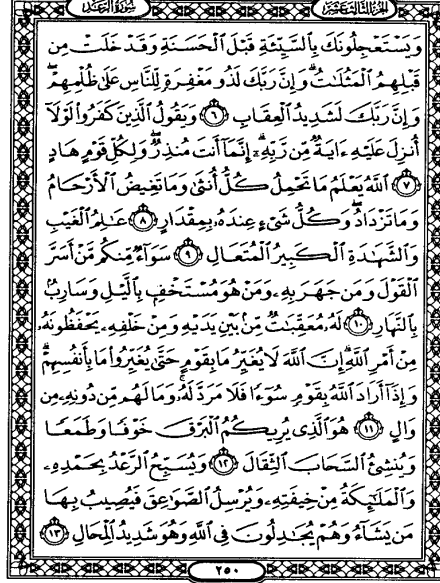 الجزء الثالث عشر سورة الرعد
وَيَسْتَعْجِلُونَكَ بِٱلسَّيِّئَةِ قَبْلَ ٱلْحَسَنَةِ وَقَدْ خَلَتْ مِن
قَبْلِهِمُ ٱلْمَثُلَٰتُۗ وَإِنَّ رَبَّكَ لَذُو مَغْفِرَةٍ لِّلنَّاسِ عَلَىٰ ظُلْمِهِمْۖ
وَإِنَّ رَبَّكَ لَشَدِيدُ ٱلْعِقَابِ ٦ وَيَقُولُ ٱلَّذِينَ كَفَرُوا۟ لَوْلَآ
أُنزِلَ عَلَيْهِ ءَايَةٌ مِّن رَّبِّهِۦٓۗ إِنَّمَآ أَنتَ مُنذِرٌۖ وَلِكُلِّ قَوْمٍ هَادٍ
٧ ٱللَّهُ يَعْلَمُ مَا تَحْمِلُ كُلُّ أُنثَىٰ وَمَا تَغِيضُ ٱلْأَرْحَامُ
وَمَا تَزْدَادُۖ وَكُلُّ شَىْءٍ عِندَهُۥ بِمِقْدَارٍ ٨ عَٰلِمُ ٱلْغَيْبِ
وَٱلشَّهَٰدَةِ ٱلْكَبِيرُ ٱلْمُتَعَالِ ٩ سَوَآءٌ مِّنكُم مَّنْ أَسَرَّ
ٱلْقَوْلَ وَمَن جَهَرَ بِهِۦ وَمَنْ هُوَ مُسْتَخْفٍۭ بِٱلَّيْلِ وَسَارِبٌۢ
بِٱلنَّهَارِ ١٠ لَهُۥ مُعَقِّبَٰتٌ مِّنۢ بَيْنِ يَدَيْهِ وَمِنْ خَلْفِهِۦ يَحْفَظُونَهُۥ
مِنْ أَمْرِ ٱللَّهِۗ إِنَّ ٱللَّهَ لَا يُغَيِّرُ مَا بِقَوْمٍ حَتَّىٰ يُغَيِّرُوا۟ مَا بِأَنفُسِهِمْۗ
وَإِذَآ أَرَادَ ٱللَّهُ بِقَوْمٍ سُوٓءًا فَلَا مَرَدَّ لَهُۥۚ وَمَا لَهُم مِّن دُونِهِۦ مِن
وَالٍ ١١ هُوَ ٱلَّذِى يُرِيكُمُ ٱلْبَرْقَ خَوْفًا وَطَمَعًا
وَيُنشِئُ ٱلسَّحَابَ ٱلثِّقَالَ ١٢ وَيُسَبِّحُ ٱلرَّعْدُ بِحَمْدِهِۦ
وَٱلْمَلَٰٓئِكَةُ مِنْ خِيفَتِهِۦ وَيُرْسِلُ ٱلصَّوَٰعِقَ فَيُصِيبُ بِهَا
مَن يَشَآءُ وَهُمْ يُجَٰدِلُونَ فِى ٱللَّهِ وَهُوَ شَدِيدُ ٱلْمِحَالِ ١٣
٢٥٠